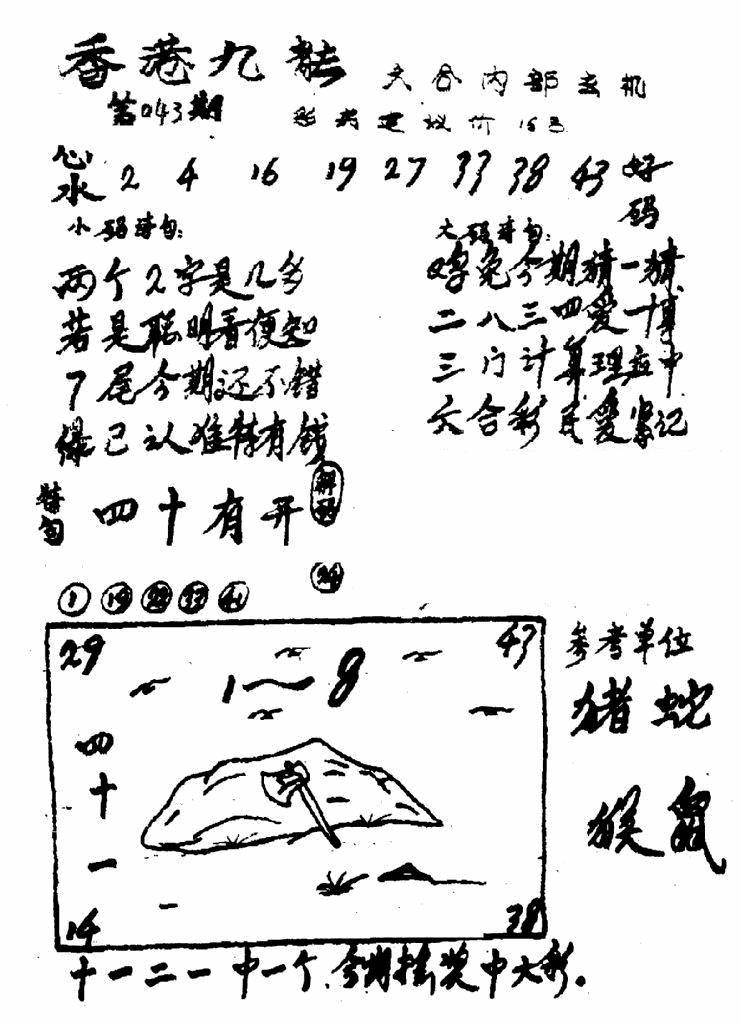 香港九龙
六合内部玄机
第043期
彩券建议价16元
心水 2 4 16 19 27 33 38 43 好码
小码诗句:
两个2字是几多
若是聪明看便知
7尾今期还不错
绿已认准特有钱
大码诗句:
鸡兔今期猜一猜
二八三四爱一博
三门计算理应中
六合彩民爱紧记
特句 四十有开
解码
1 19 33
29 43
1~8
四十一
14 38
参考单位
猪 蛇
猴 鼠
十一二一中一个,今期摇奖中大彩。